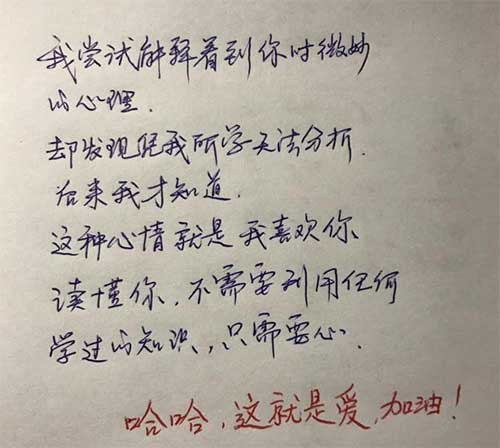 我尝试解释看到你时微妙
的心理.
却发现经我所学无法分析.
后来我才知道.
这种心情就是我喜欢你
读懂你,不需要利用任何
学过的知识,只需要心.
哈哈,这就是爱,加油!